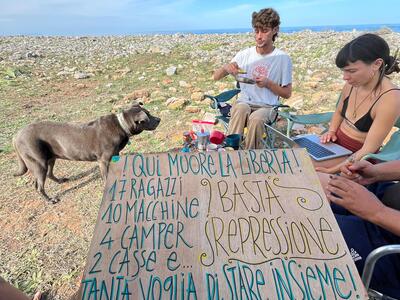 QUI MUORE LA LIBERTA'!
17 RAGAZZI
10 MACCHINE
4 CAMPER
2 CASE E...
BASTA
REPRESSIONE
TANTA VOGLIA DI STARE INSIEME!